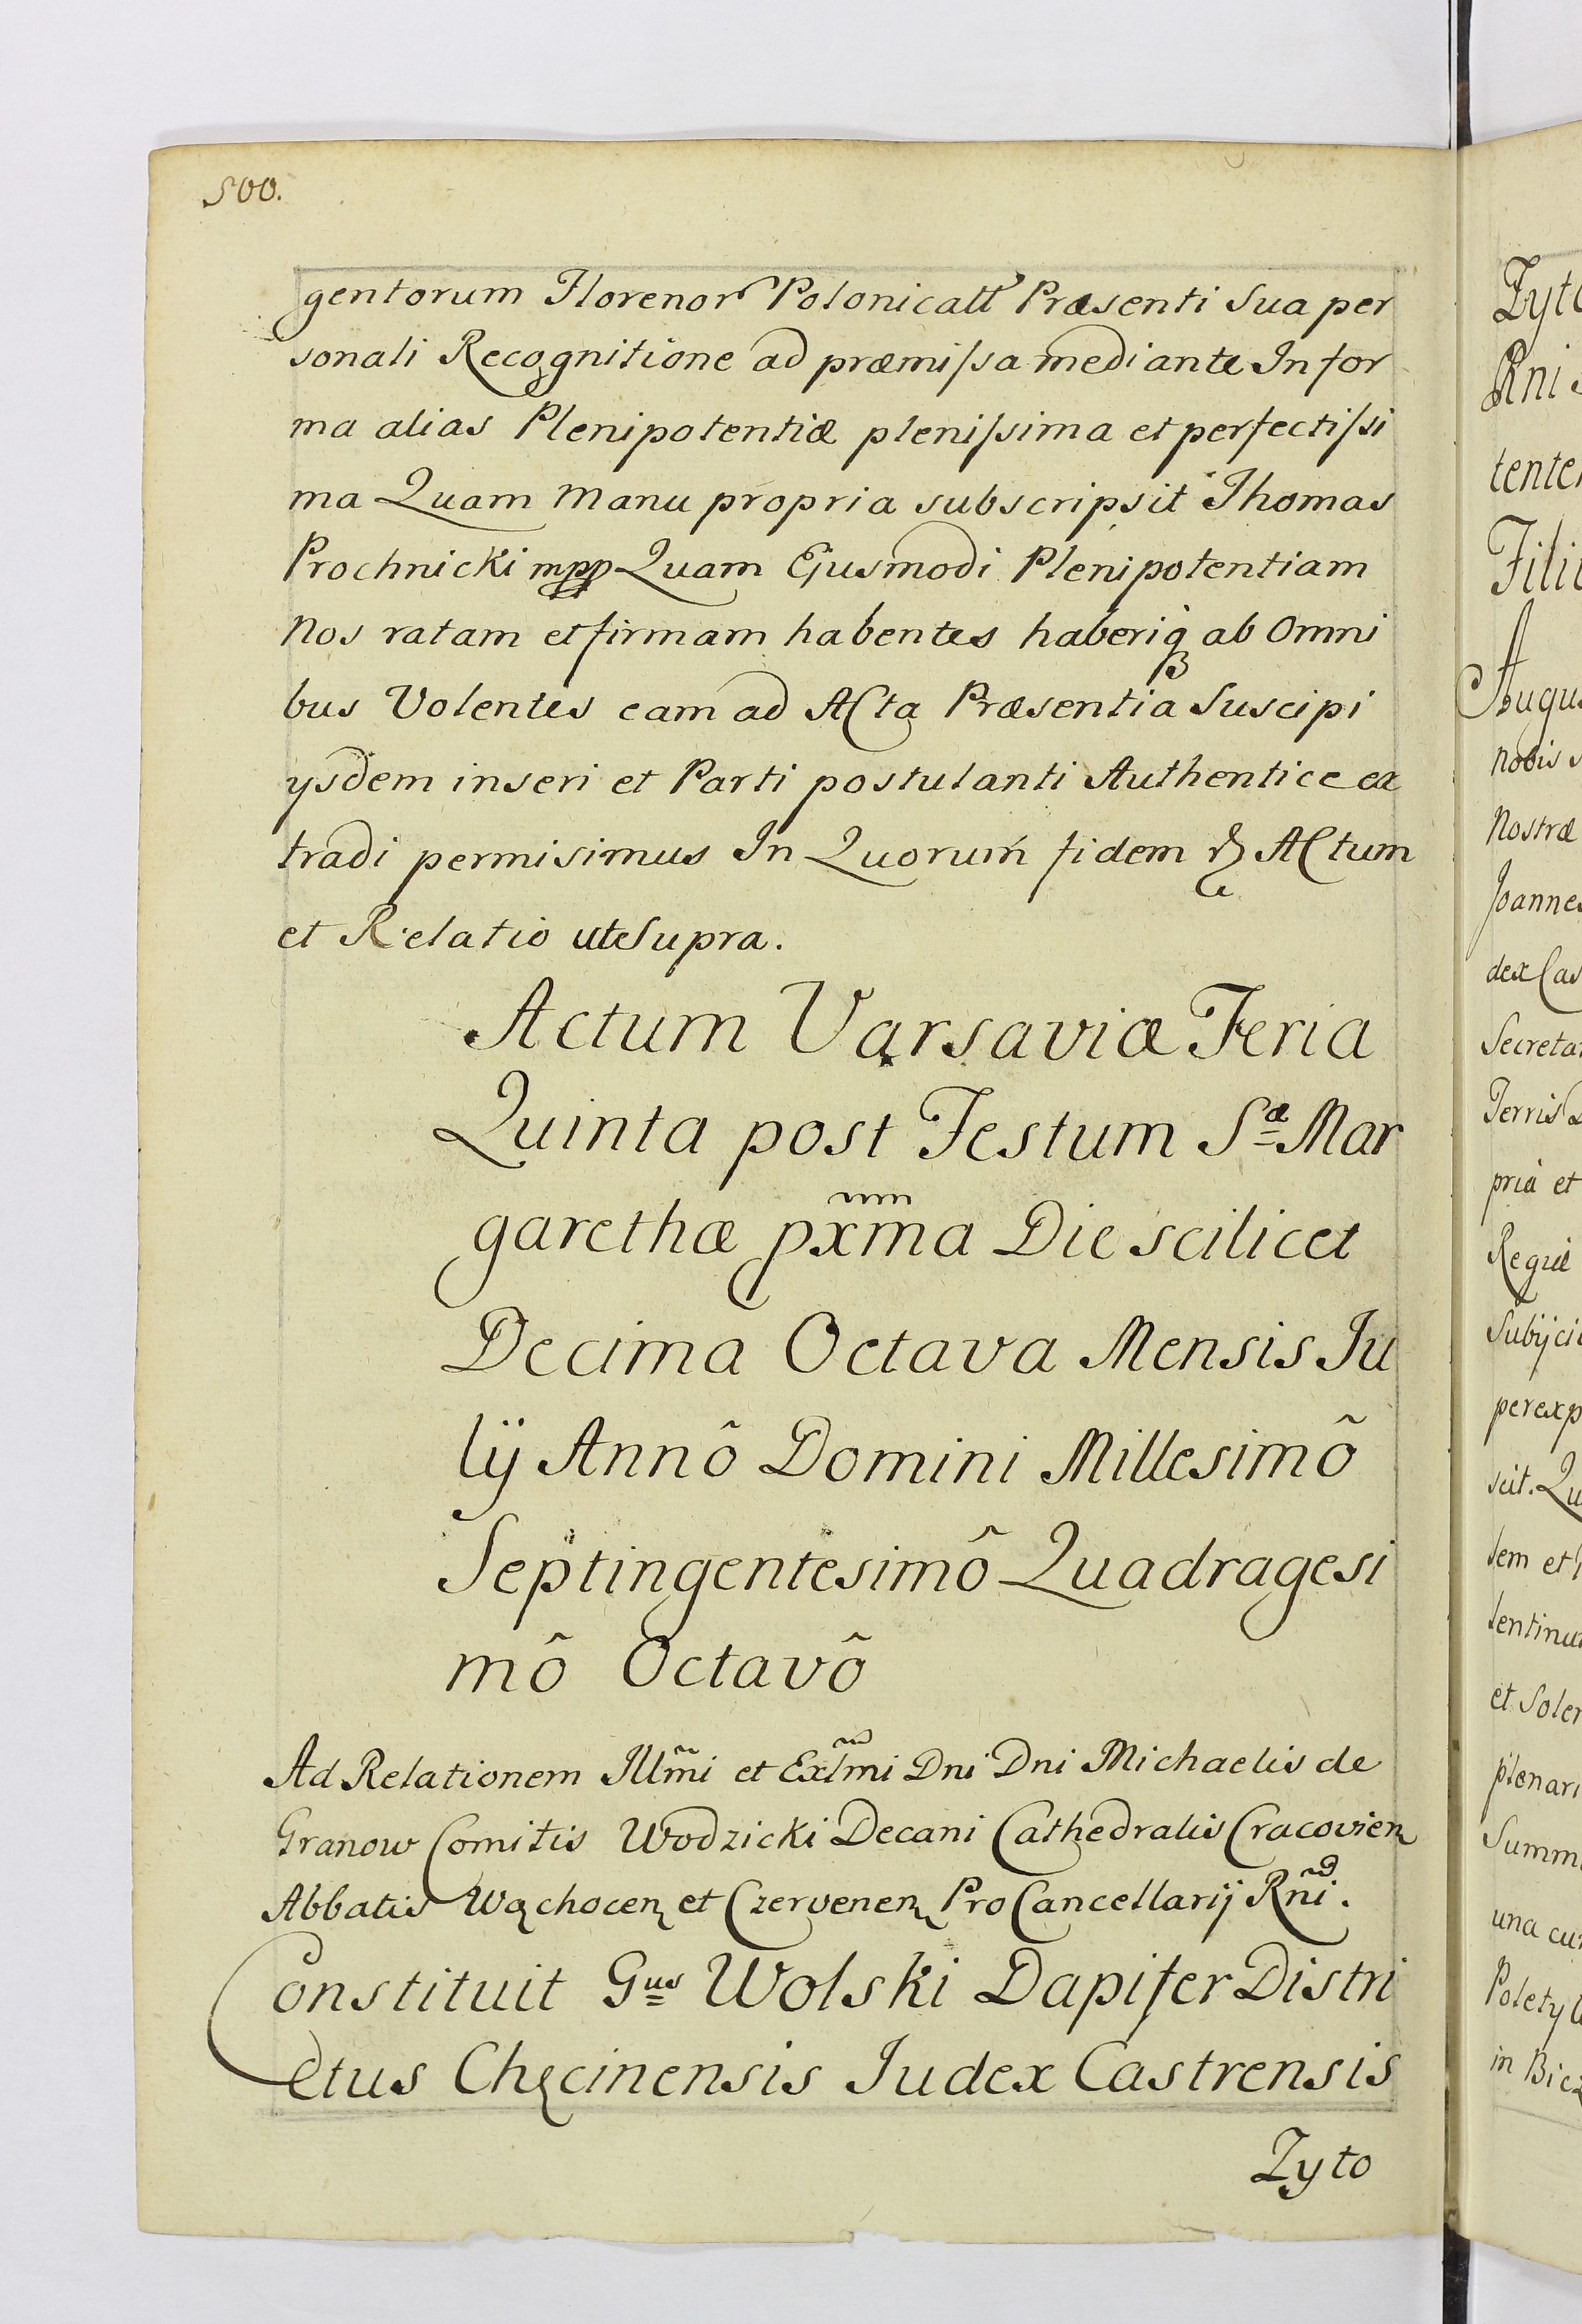 500.
gentorum Florenor Polonicall Præsenti Sua per
sonali Recognitione ad præmissa mediante In for
ma alias Plenipotentiæ plenissima et perfectissi
ma Quam Manu propria subscripsit Thomas
Prochnicki mpp Quam Ejusmodi Plenipotentiam
Nos ratam et firmam habentes haberiq ab Omni
bus Volentes eam ad Acta Præsentia Suscipi
ysdem inseri et Parti postulanti Authentice ex
tradi permisimus In Quorum fidem Actum
et Relatio ut Supra.
Actum Varsaviæ Feria
Quinta post Festum Sæ Mar
garethæ pxma Die scilicet
Decima Octava Mensis Ju
lij Annô Domini Millesimô
Septingentesimô Quadragesi
mô Octavô
Ad Relationem Illmi et Exlmi Dni Dni Michaelis de
Granow Comitis Wodzicki Decani Cathedralis Cracovien
Abbatis Wąchocen et Czervenen ProCancellarij Rni.
Constituit Gus Wolski Dapifer Distri
ctus Chęcinensis Judex Castrensis
Zyto
Zyto
Rni
Filii
Nobis
Nostræ
Joannes
dex Cas
Secretar
Terris
pria et
Regiæ
perexp
scit. Qu
dem et
et Soler
plenari
Summ
una cum
in Biez